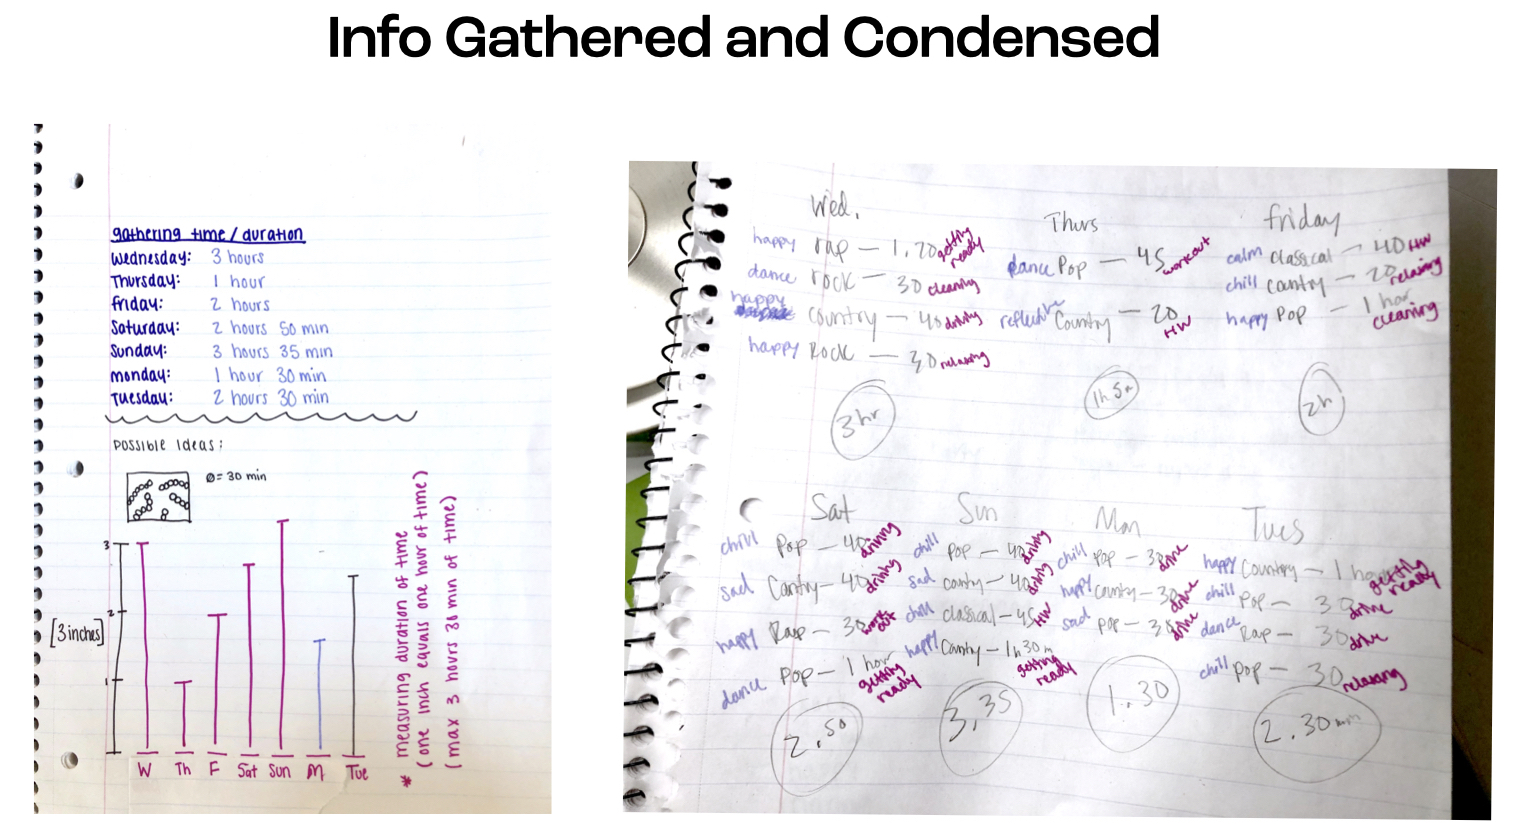 Info Gathered and Condensed
gathering time / duration
Wednesday: 3 hours
Thursday: 1 hour
friday: 2 hours
Saturday: 2 hours 50 min
Sunday: 3 hours 35 min
monday: 1 hour 30 min
Tuesday: 2 hours 30 min
POSSIBLE Ideas:
Ø= 30 min
3
2
[3 inches]
1
W Th F Sat Sun M Tue
* measuring duration of time
(one inch equals one hour of time)
(max 3 hours 30 min of time)
Wed.
happy rap - 1.20 getting ready
dance rock - 30 cleaning
happy country - 40 driving
happy Rock - 30 relaxing
3 hr
Thurs
dance Pop - 45 workout
reflective Country - 20 HW
friday
calm classical - 40 HW
chill country - 20 relaxing
happy Pop - 1 hor cleaning
2h
Sat
chill Pop - 40 driving
sad Cantry - 40 driving
happy Rap - 30 work out
dance Pop - 1 hour getting ready
2.50
Sun
chill pop - 40 driving
sad country - 40 driving
chill classical - 45 HW
happy Cantry - 1h30m getting ready
3,35
Mon
chill pop - 30 drive
happy country - 30 drive
sad pop - 30 drive
1.30
Tues
happy Country - 1 hour getting ready
chill Pop - 30 drive
dance Rap - 30 drive
chill pop - 30 relaxing
2.30 min